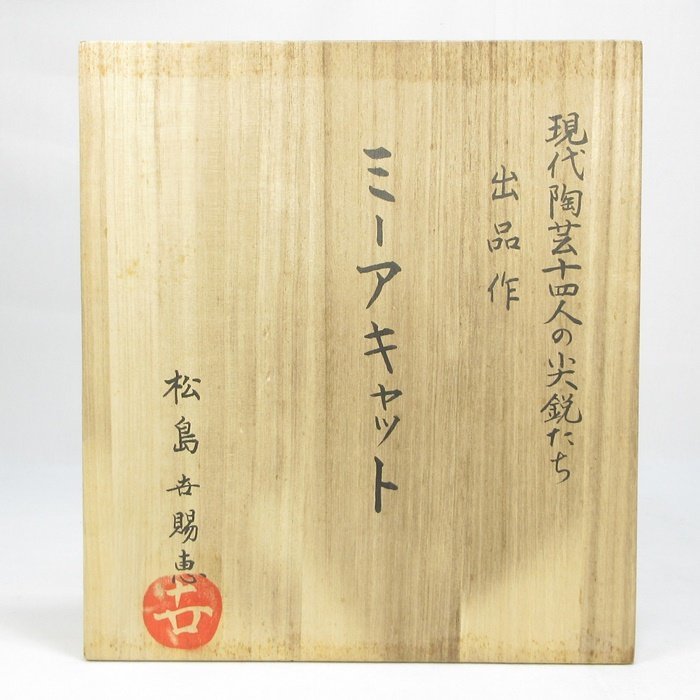 現代陶芸十四人の尖鋭たち
出品作
ミーアキャット
松島𠮷賜恵